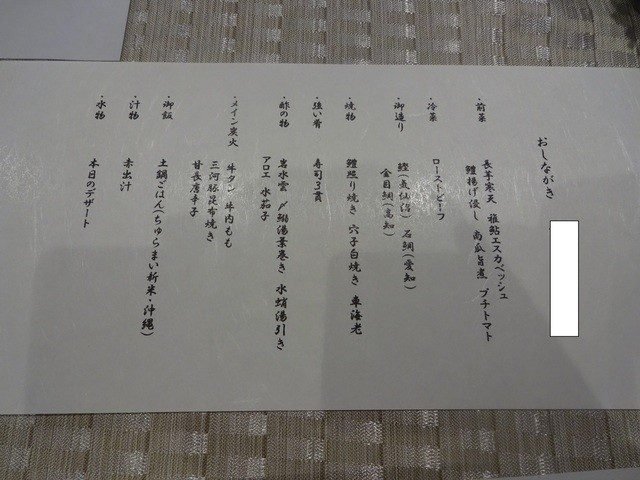 おしながき
・前菜 長芋寒天 稚鮎エスカベッシュ
鱧揚げ浸し 南瓜旨煮 プチトマト
・冷菜 ローストビーフ
・御造り 鰹(気仙沼) 石鯛(愛知)
金目鯛(高知)
・焼物 鱧照り焼き 穴子白焼き 車海老
・強い肴 寿司3貫
・酢の物 岩水雲 〆鯵湯葉巻き 水蛸湯引き
アロエ 水茄子
・メイン炭火 牛タン 牛内もも
三河豚昆布焼き
甘長唐辛子
・御飯 土鍋ごはん(ちゅらまい新米・沖縄)
・汁物 赤出汁
・水物 本日のデザート